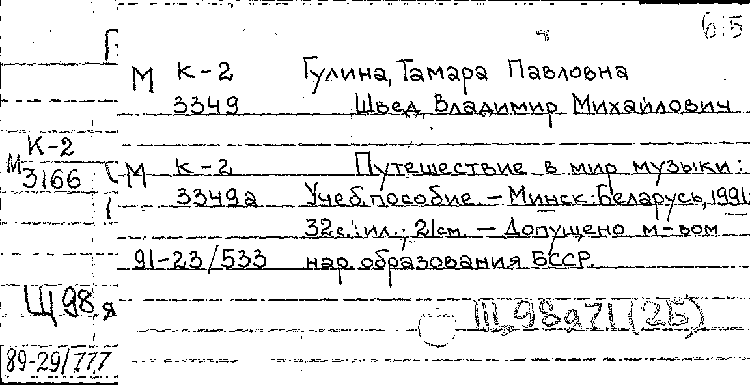 6.5
М К-2 Гулина, Тамара Павловна
3349 Швед, Владимир Михайлович
М К-2 Путешествие в мир музыки:
3349а Учеб. пособие. – Минск: Беларусь, 1991.
32с.: ил.; 21см. – Допущено м-вом
91-23/533 нар. образования БССР.
Щ98я71(2Б)
К-2
М 3166
Щ98.я
89-29/777